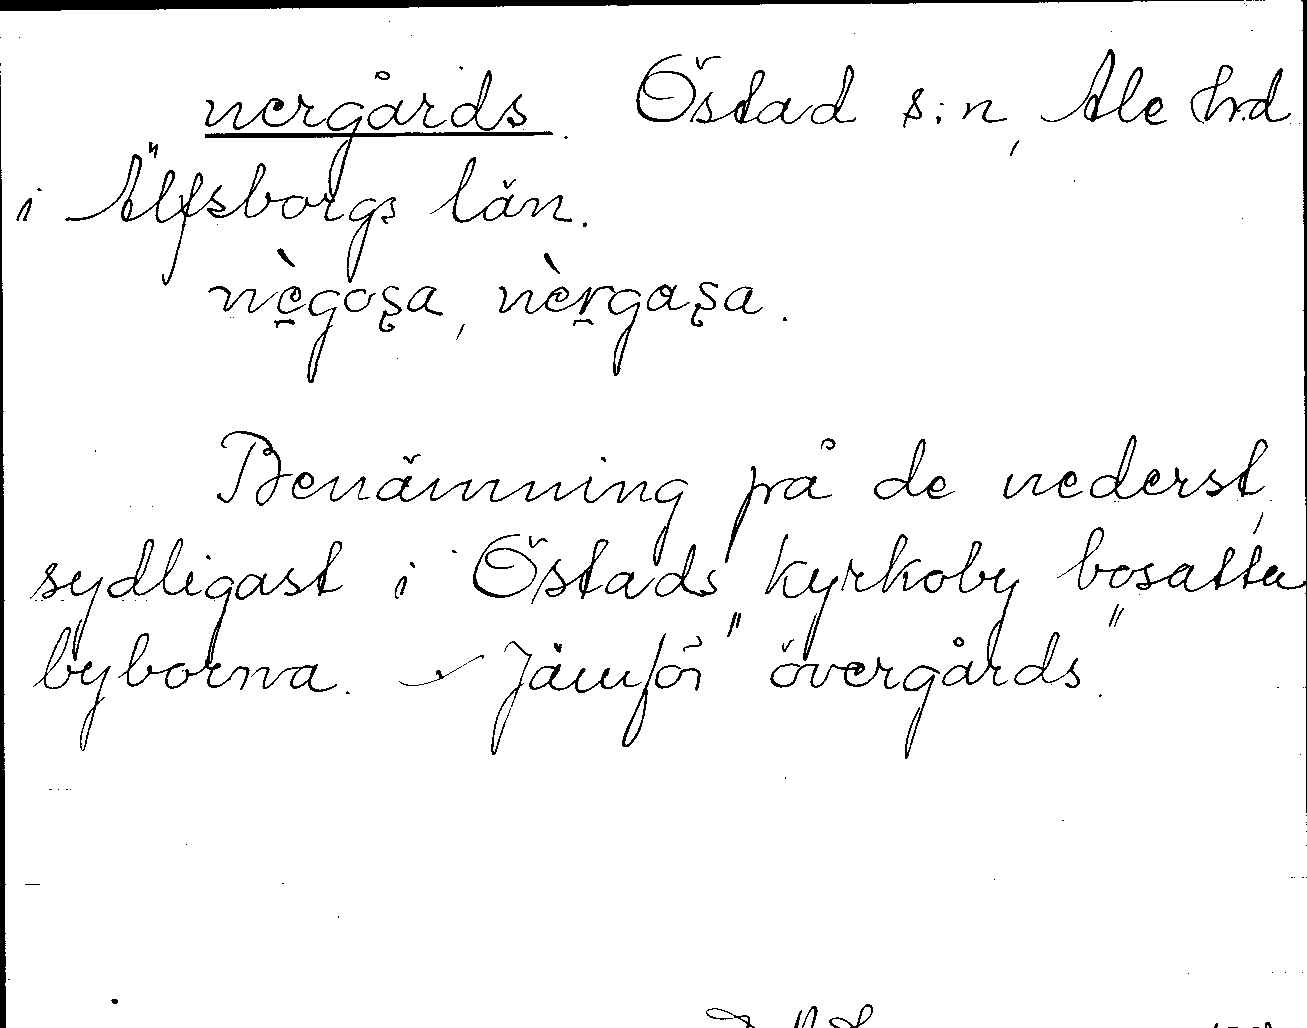 nergårds. Östad s:n, Ale hrd
i Älfsborgs län.
nè̱goʂa, nèṟgaʂa.
Benämning på de nederst,
sydligast i Östads kyrkoby bosatta
byborna. – Jämför "övergårds".